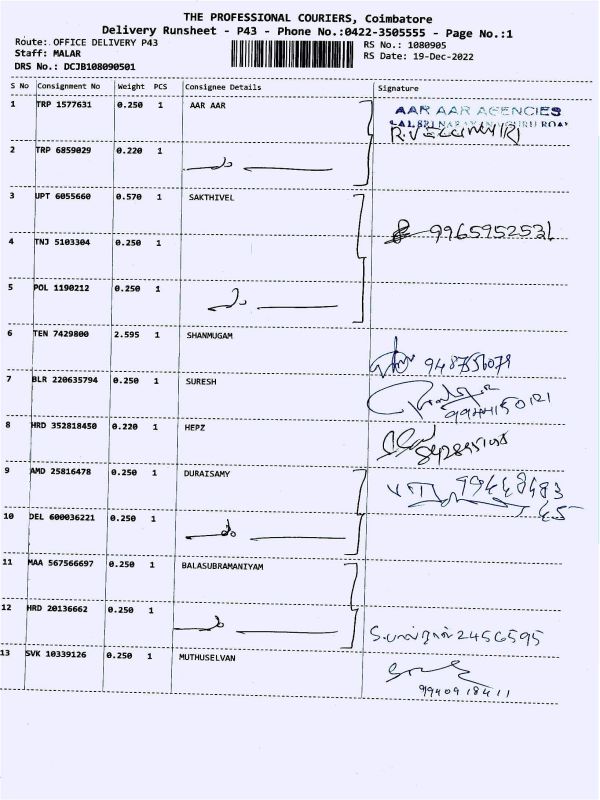 THE PROFESSIONAL COURIERS, Coimbatore
Delivery Runsheet - P43 - Phone No.:0422-3505555 - Page No.:1
Route: OFFICE DELIVERY P43
Staff: MALAR
DRS No.: DCJB108090501
RS No.: 1080905
RS Date: 19-Dec-2022
S No Consignment No Weight PCS Consignee Details Signature
1 TRP 1577631 0.250 1 AAR AAR
AAR AAR AGENCIES
2 TRP 6859029 0.220 1
3 UPT 6055660 0.570 1 SAKTHIVEL
9965952531
4 TNJ 5103304 0.250 1
5 POL 1190212 0.250 1
6 TEN 7429800 2.595 1 SHANMUGAM
7 BLR 220635794 0.250 1 SURESH
8 HRD 352818450 0.220 1 HEPZ
9 AMD 25816478 0.250 1 DURAISAMY
99448483
45
10 DEL 600036221 0.250 1
11 MAA 567566697 0.250 1 BALASUBRAMANIYAM
12 HRD 20136662 0.250 1
2456595
13 SVK 10339126 0.250 1 MUTHUSELVAN
9940918411